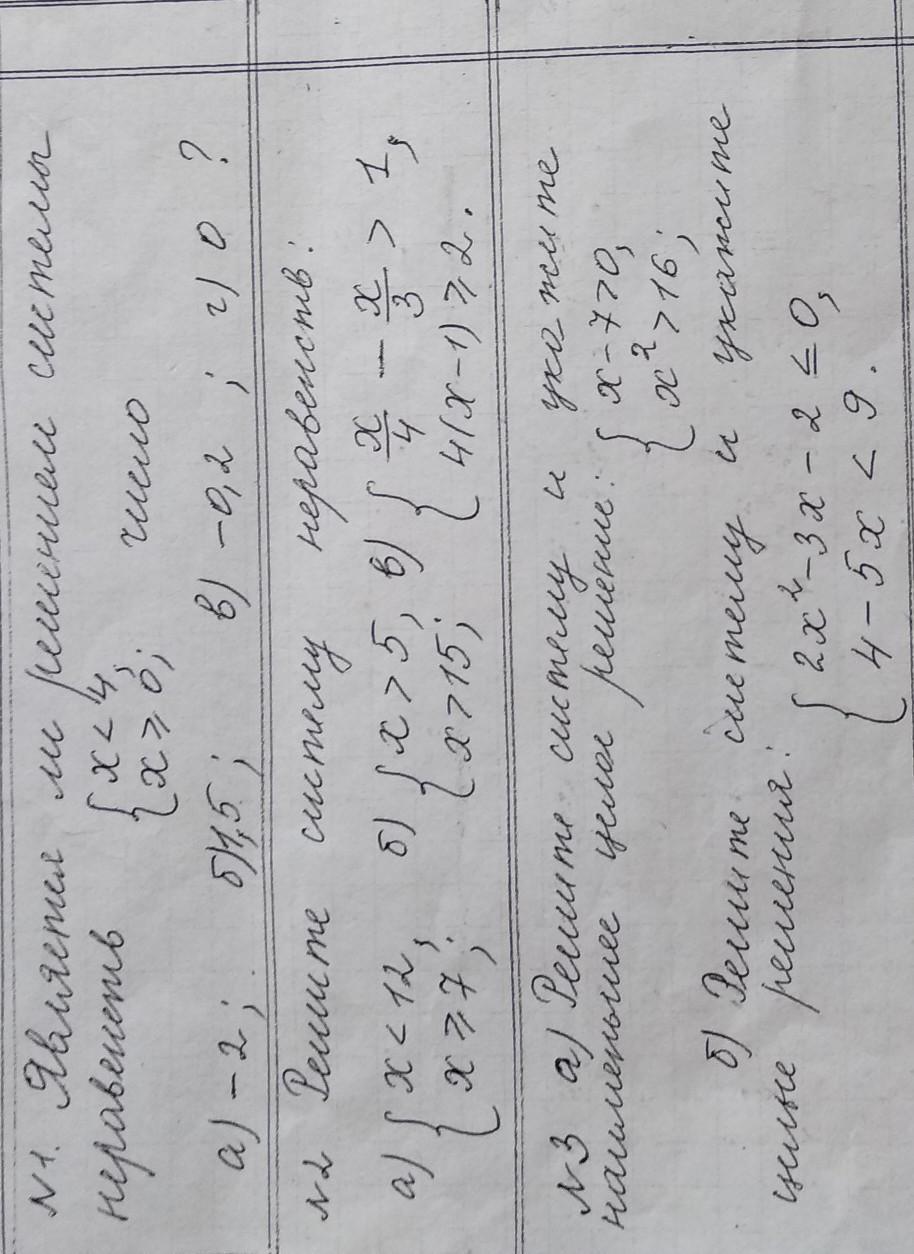 N1. Является ли решением системы
неравенств { x < 4, x ≥ 0; число
а) -2; б) 1,5; в) -0,2; г) 0 ?
N2 Решите систему неравенств:
а) { x < 12, x ≥ 7; б) { x > 5, x > 15; в) { x/4 - x/3 > 1, 4(x-1) ≥ 2.
N3 а) Решите систему и укажите
наименьшее целое решение: { x - 7 > 0, x² > 16;
б) Решите систему и укажите
целые решения: { 2x² - 3x - 2 ≤ 0, 4 - 5x < 9.